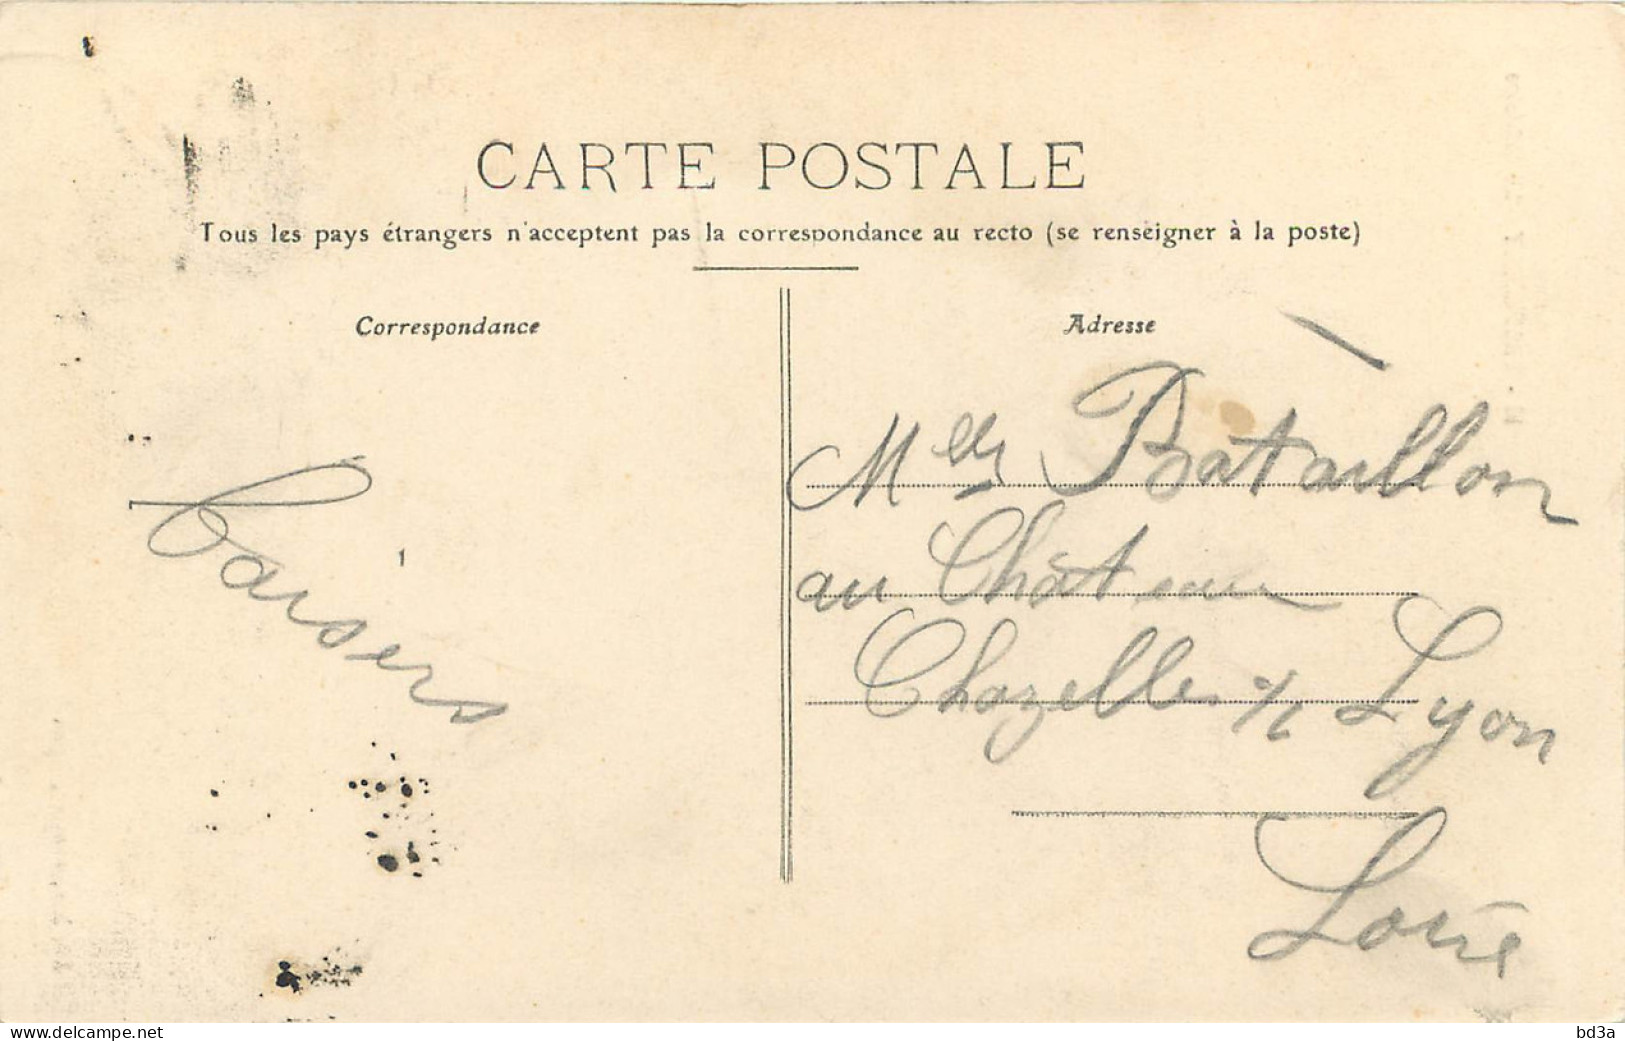 CARTE POSTALE
Tous les pays étrangers n'acceptent pas la correspondance au recto (se renseigner à la poste)
Correspondance
Adresse
Baisers
Melle Bataillon
au Château
Chazelles s/ Lyon
Loire
www.delcampe.net
bd3a